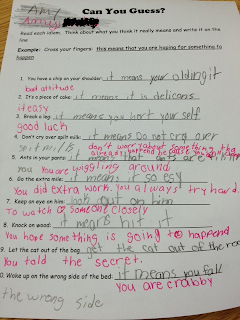 Amy
Can You Guess?
Read each idiom. Think about what you think it really means and write it on the line
Example: Cross your fingers: this means that you are hoping for something to happen
1. You have a chip on your shoulder: it means your olding it
bad attitude
2. It's a piece of cake: it means it is delicons
it easy
3. Break a leg: it means you hort your self
good luck
4. Don't cry over spilt milk: it means Do not cry over
spilt milk don't worry about something tha
already happend be cause you can't
5. Ants in your pants: it means that ants are in
you You are wiggling around
6. Go the extra mile: it means ir so easy
You did extra work. you always try hard.
7. Keep an eye on him: look out on him
To watch someone closely
8. Knock on wood: it means hit it
You hope something is going to happend
9. Let the cat out of the bag: get the cat out of the
You told the secret.
10. Woke up on the wrong side of the bed: it means you fall
the wrong side You are crabby